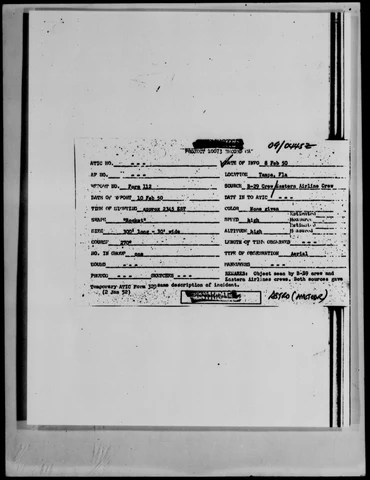 09/0445Z
PROJECT 10073 RECORD CARD
ATIC NO. - - - - DATE OF INFO 8 Feb 50
AF NO. - - - - LOCATION Tampa, Fla
REPORT NO. Form 112 SOURCE B-29 Crew/Eastern Airline Crew
DATE OF REPORT 10 Feb 50 DATE IN TO ATIC - - - -
TIME OF SIGHTING approx 2345 EST COLOR None given
SHAPE "Rocket" SPEED high
SIZE 300' long - 30' wide ALTITUDE high
COURSE 270° LENGTH OF TIME OBSERVED - - -
NO. IN GROUP one TYPE OF OBSERVATION Aerial
SOUND - - - MANEUVERS - - -
PHOTOS - - - SKETCHES - - - REMARKS: Object seen by B-29 crew and
Eastern Airlines crews. Both sources gave
Temporary ATIC Form 329 same description of incident.
(2 Jan 52)
ASTRO (METEOR)